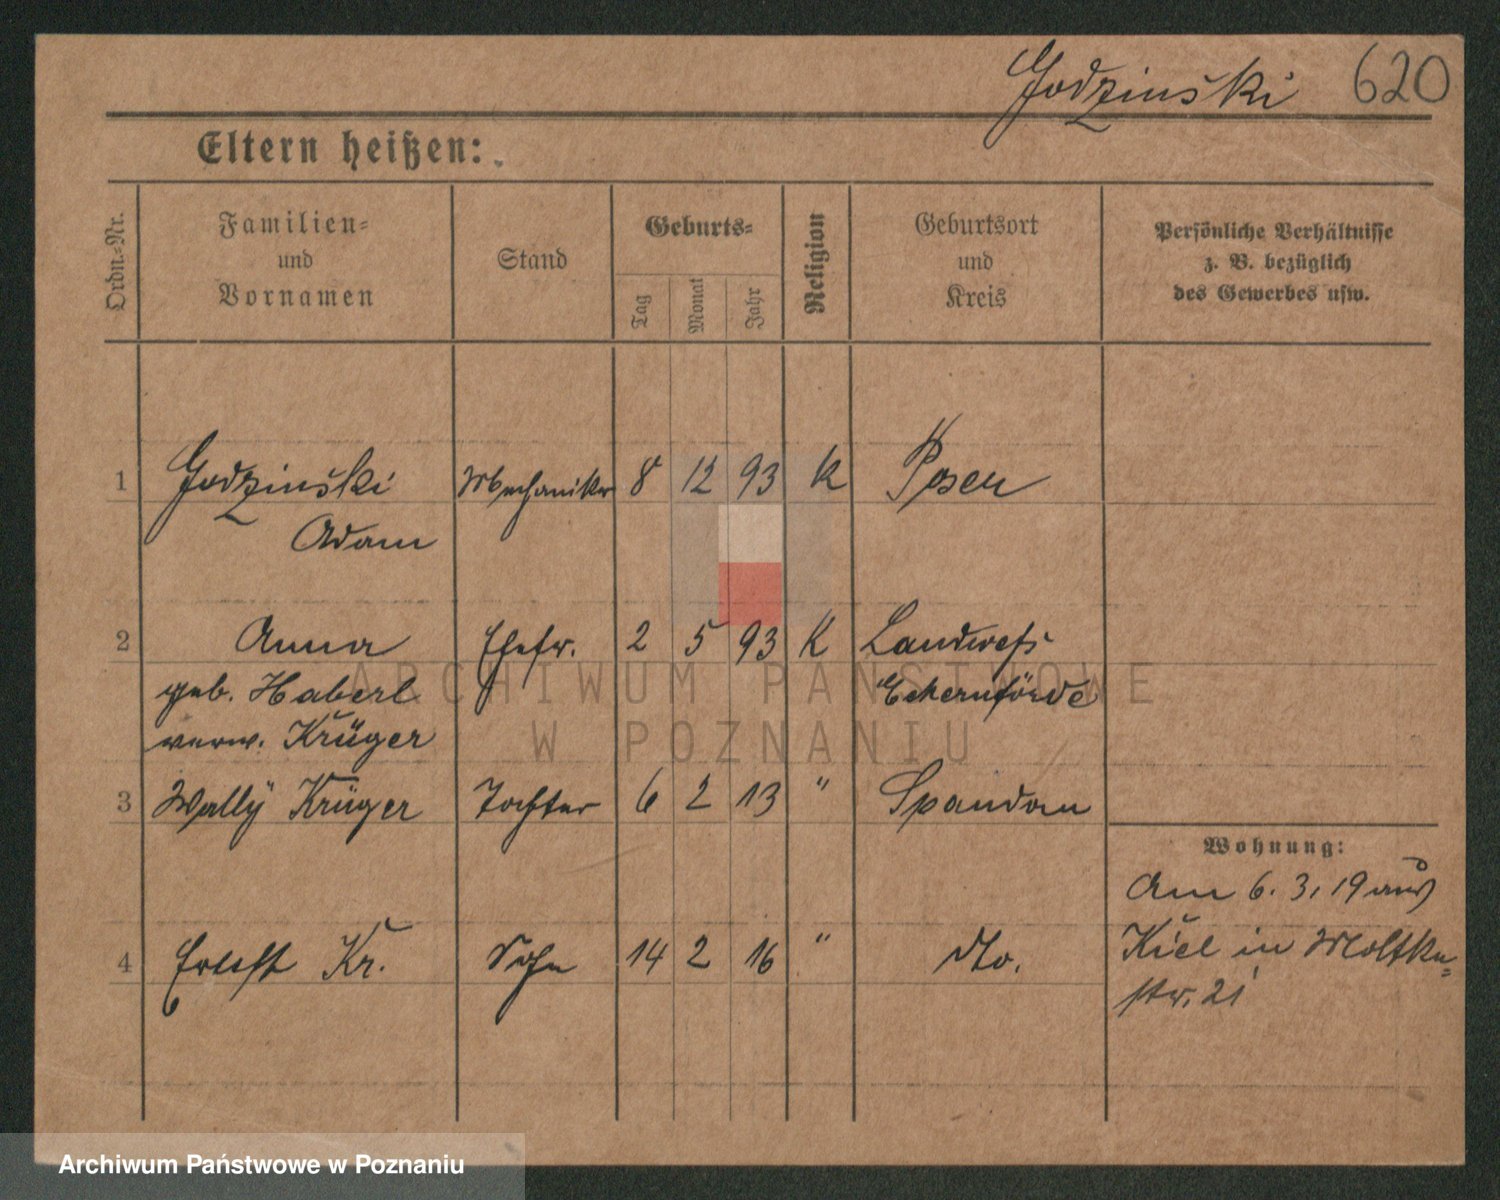 Godzinski 620
Eltern heißen:
Ordn.-Nr.
Familien-
und
Vornamen
Stand
Geburts-
Tag
Monat
Jahr
Religion
Geburtsort
und
Kreis
Persönliche Verhältnisse
z. B. bezüglich
des Gewerbes usw.
1 Godzinski Mechaniker 8 12 93 K Posen
Adam
2 Anna Ehefr. 2 5 93 K
geb. Haberl Eckernförde
verw. Krüger
3 Wally Krüger Tochter 6 2 13 " Spandau
Wohnung:
Am 6. 3. 19 aus
4 Kr. Sohn 14 2 16 " dto. Kiel in Moltke-
str. 21
ARCHIWUM PAŃSTWOWE
W POZNANIU
Archiwum Państwowe w Poznaniu